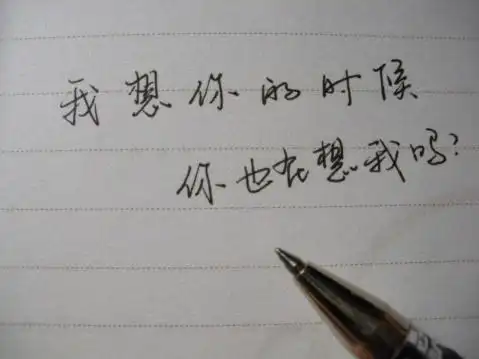 我想你的时候
你也在想我吗?